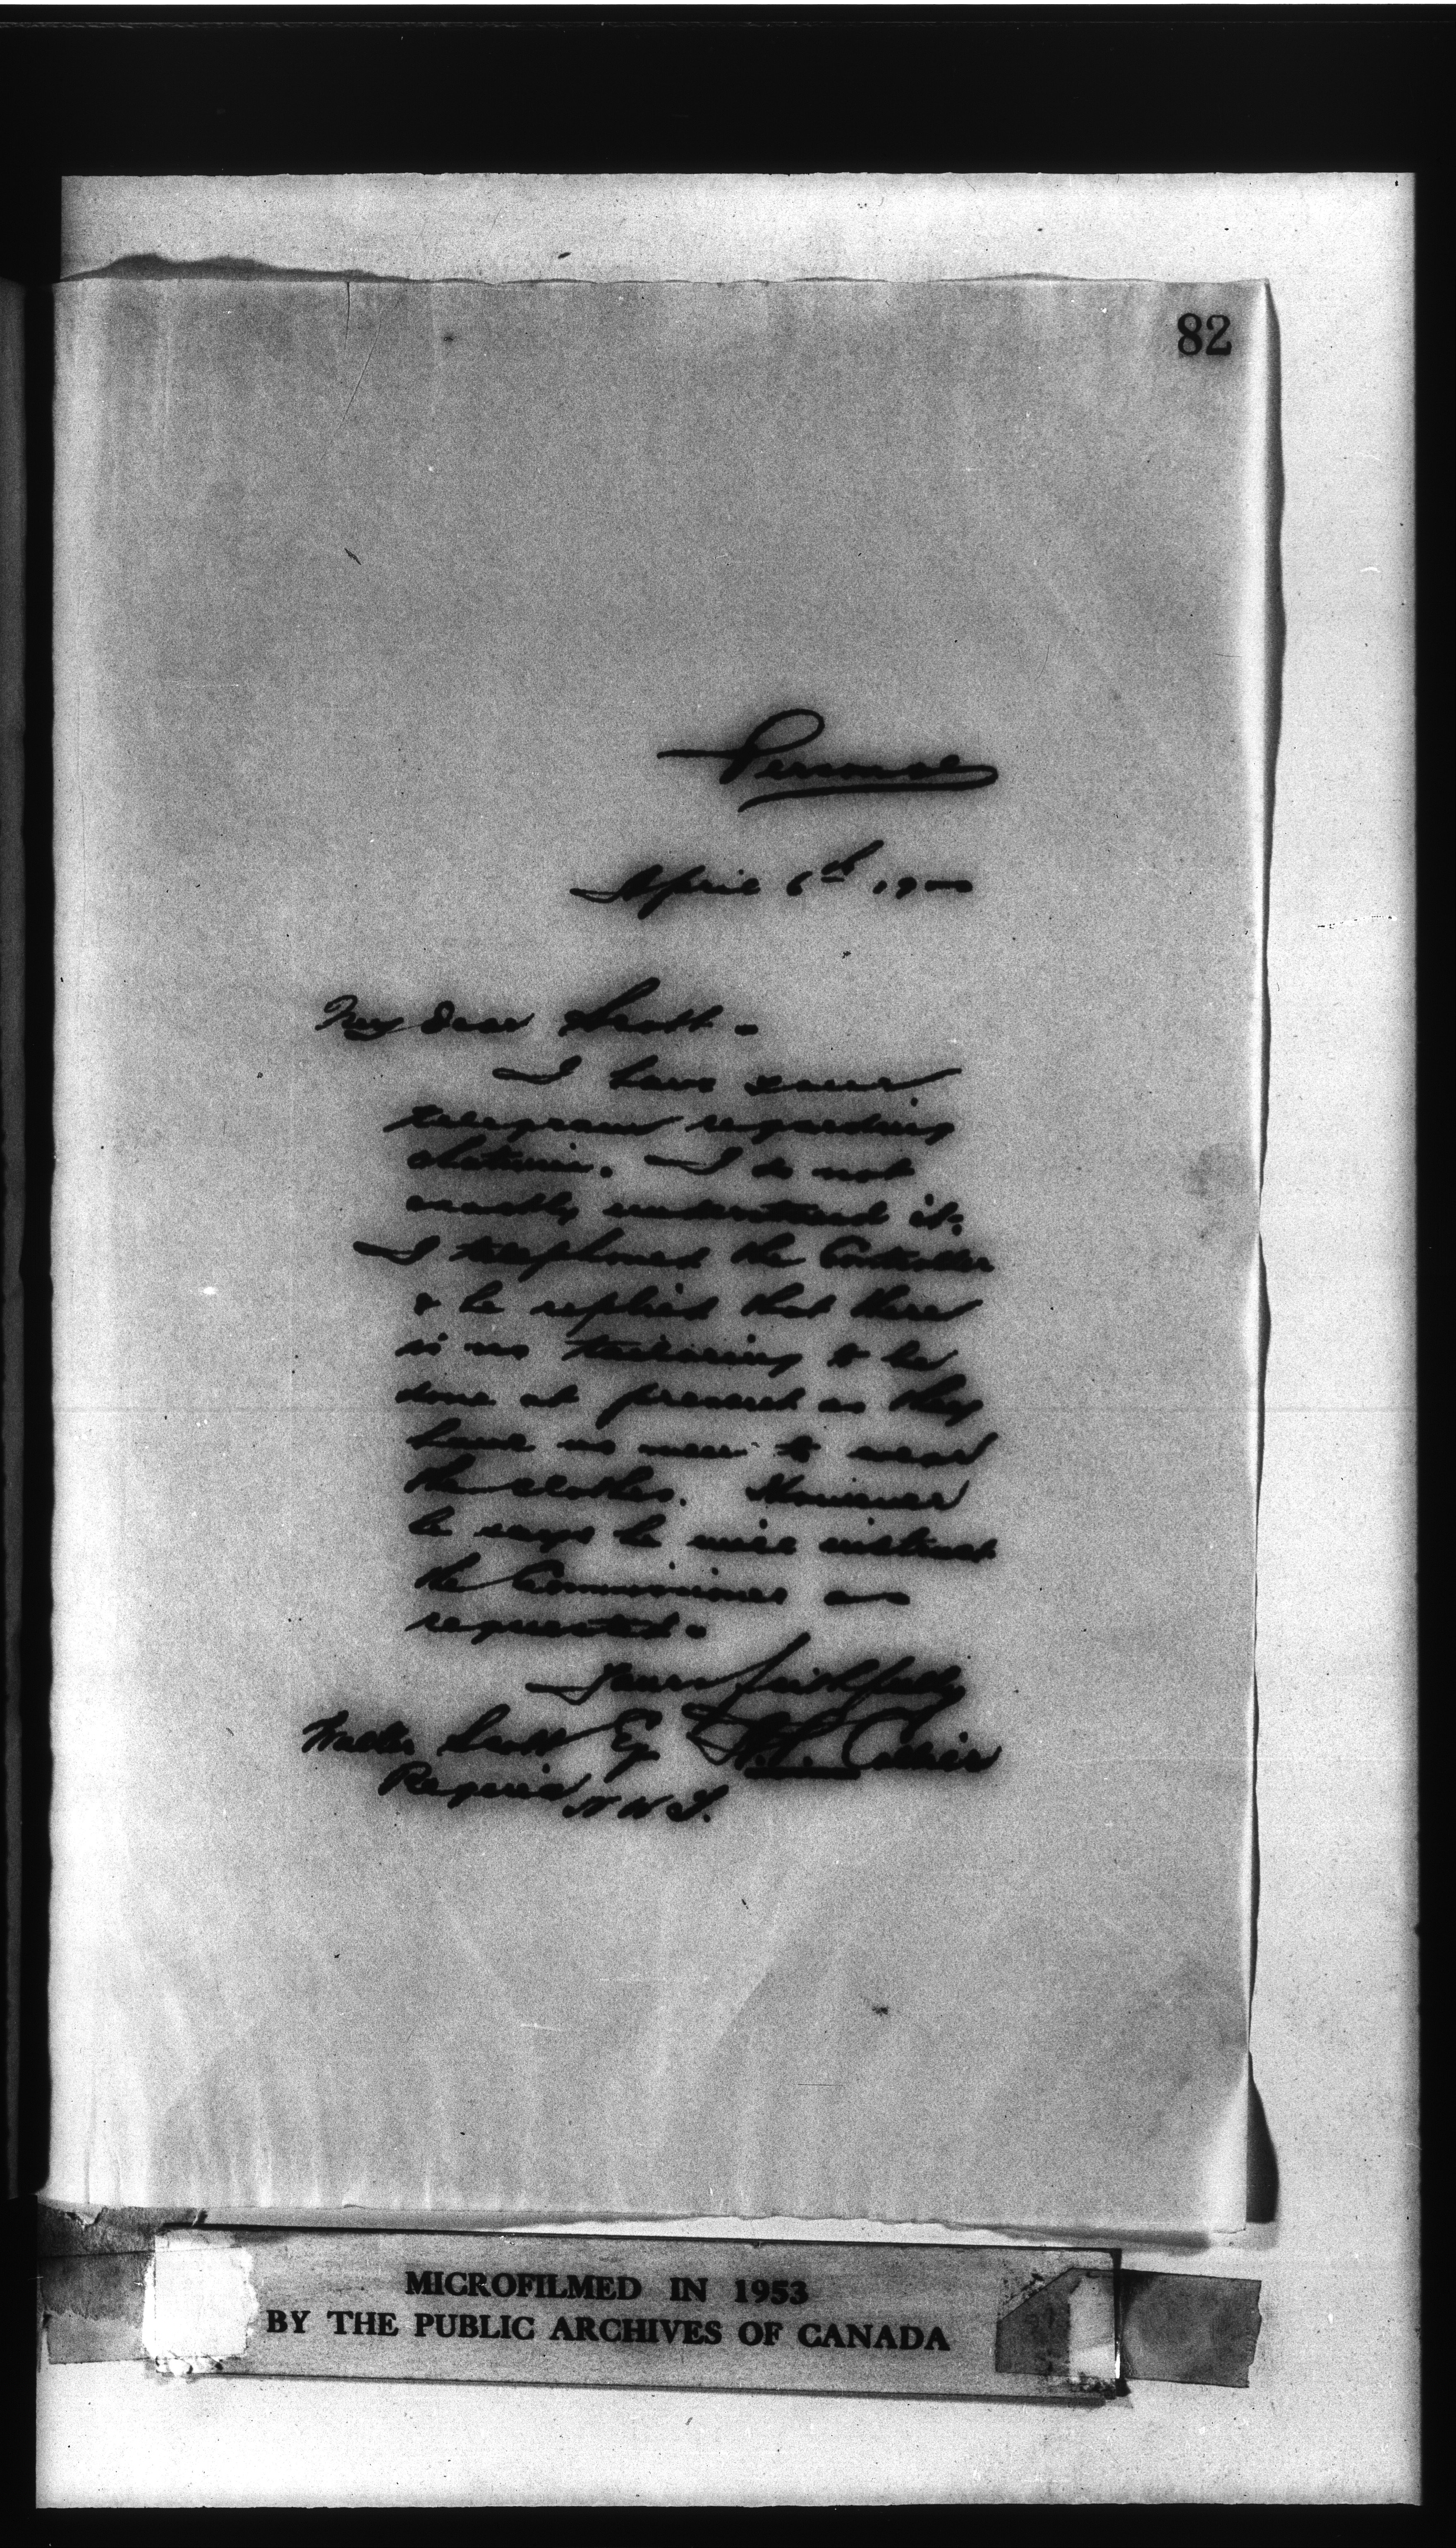 82
Personal
April 6th 1900
My dear Scott -
I have your
telegram regarding
I do not
exactly understand it.
I telephoned the Controller
& he replied that there
is no tailoring to be
done at present as they
have no men to wear
the clothes. However
he says he will instruct
the Commissioner as
requested.
Yours faithfully
Walter Scott Esq
Regina N W T.
MICROFILMED IN 1953
BY THE PUBLIC ARCHIVES OF CANADA